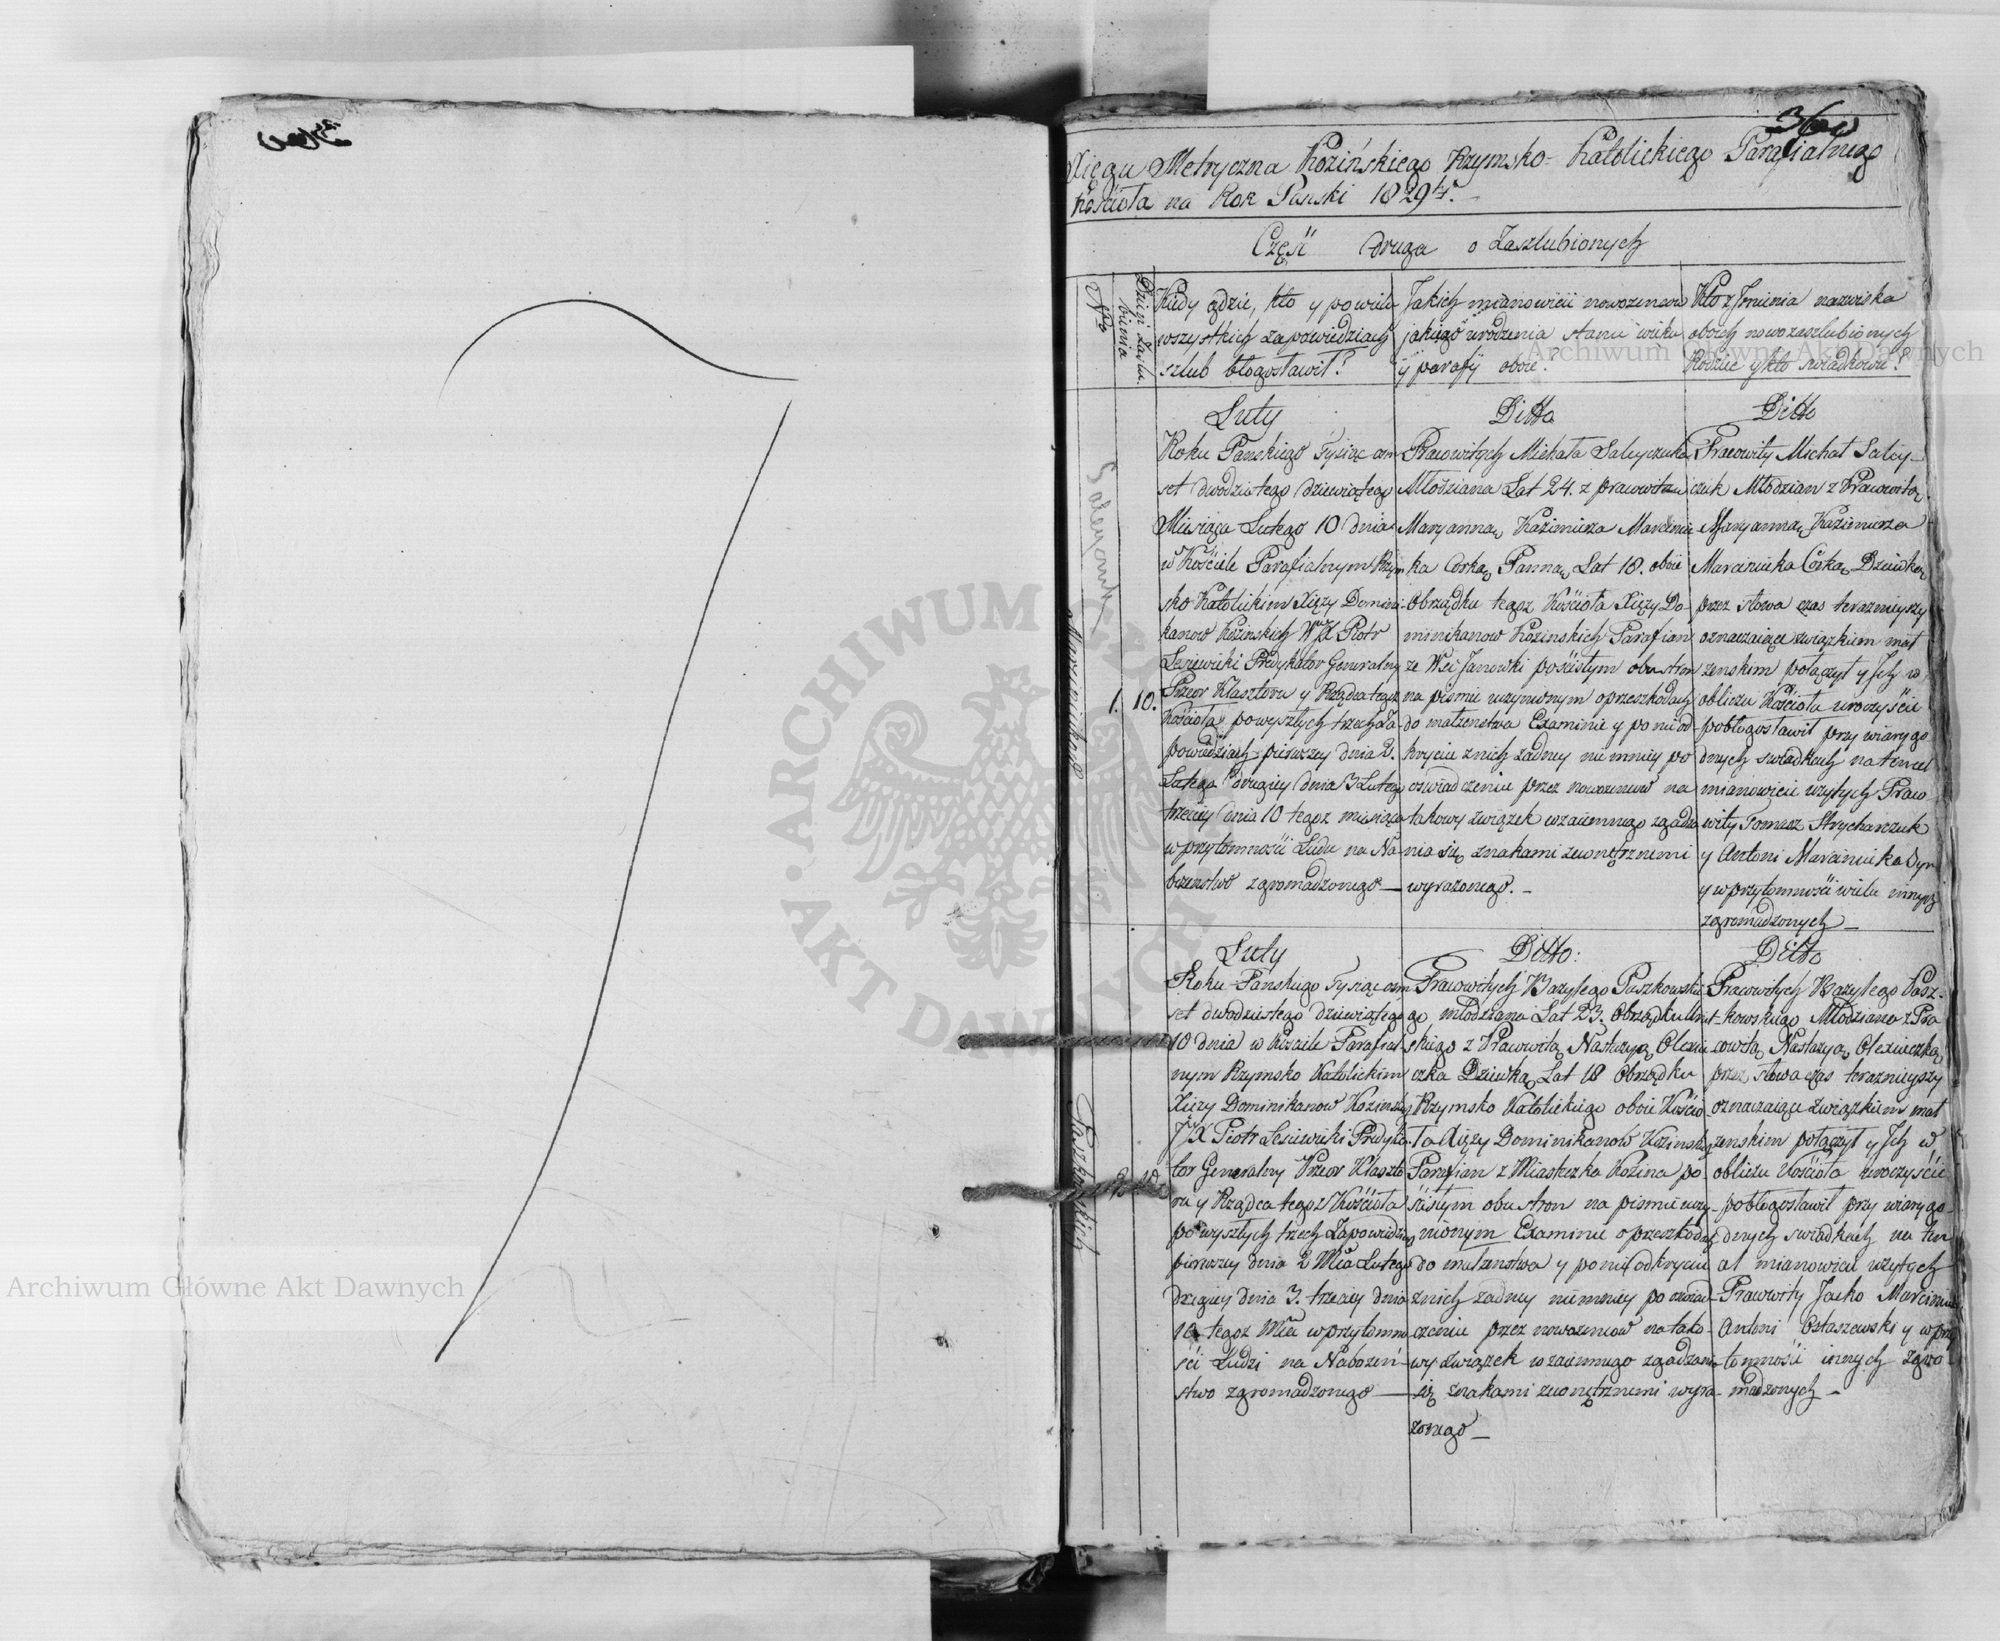 360
Xięga Metryczna Kozińskiego Rzymsko-Katolickiego Parafialnego
Kościoła na Rok Panski 1829ty.
Część druga o Zaszlubionych
Nro
Dzień Zaszlubienia
Kiedy gdzie, kto y po wielu
wszystkich zapowiedziach
szlub błogosławił?
Jakich mianowicie nowozencow
jakiego urodzenia stanu wieku
y parafij oboie?
Kto z Jmienia nazwiska
oboich nowozaszlubionych
Rodzice y kto swiadkowie?
Luty
Roku Panskiego Tysiąc osm
set dwodziestego dziewiątego
Miesiąca Lutego 10 dnia
w Kościele Parafialnym Rzym
sko Katolickim Xięzy Domini
kanow Kozinskich WJX Piotr
Lesiewicki Predykator Generalny
Przeor Klasztoru y Rządca tegoz
Kościoła powyszłych trzech Za
powiedziach pierwszey dnia 2.
Lutego drugiey dnia 3 Lutego
trzeciey dnia 10 tegoz miesiąca
w przytomności Ludu na Na
bozenstwo zgromadzonego —
1. 10.
Ditto
Pracowitych Michała Saleyczuka
Młodziana Lat 24. z pracowitą
Maryanną Kazimierza Marciniu
ka Corką Panną Lat 18. oboie
Obrządku tegoz Kościoła Xięzy Do-
minikanow Kozinskich Parafian
ze Wsi Janowki pościsłym obustron
na pismie uczynionym o przeszkodach
do małzenstwa Examinie y po nieod-
kryciu z nich zadney niemniey po
oswiadczeniu przez nowozencow na
takowy związek wzaiemnego zgadza
nia się znakami zewnętrznemi
wyrazonego. -
Ditto
Pracowity Michał Saley-
czuk Młodzian z Pracowitą
Maryanną Kazimierza
Marciniuka Córką Dziewką
przez słowa czas teraznieyszy
oznaczaiące związkiem mał
zenskim połączył y Jch w
obliczu Kościoła uroczyście
pobłogosławił przy wiarygo
dnych swiadkach na ten cel
mianowicie uzytych Praco
wity Tomasz Strycharczuk
y Antoni Marciniuka Syn
y w przytomności wielu innych
zgromadzonych —
Saleyczuk
Marciniukną
Luty
Roku Panskiego Tysiąc osm
set dwodziestego dziewiątego
10 dnia w Kościele Parafial-
nym Rzymsko Katolickim
Xięzy Dominikanow Kozinskich
JX Piotr Lesiewicki Predyka-
tor Generalny Przeor Klaszto
ru y Rządca tegoz Kościoła
powyszłych trzech Zapowiedziach
pierwszey dnia 2 Mca Lutego
drugiey dnia 3. trzeciey dnia
10 tegoz Mca w przytomno
ści Ludzi na Nabozeń-
stwo zgromadzonego —
2. 10.
Ditto:
Pracowitych Bazylego Paszkowskie
go młodziana Lat 23. Obrządku Unit-
skiego z Pracowitą Nastazyą Olexiu
czka Dziewką Lat 18 Obrządku
Rzymsko Katolickiego oboie Kościo
ła Xięzy Dominikanów Kozinskich
Parafian z Miasteczka Kozina po-
ścisłym obustron na pismie uczy-
nionym Examinie o przeszkodach
do małzenstwa y po nieodkryciu
z nich zadney niemniey po oswiad-
czeniu przez nowozencow na tako-
wy związek wzaiemnego zgadzania
się znakami zewnętrznemi wyra-
zonego —
Ditto
Pracowitych Bazylego Pasz-
kowskiego Młodziana z Pra
cowitą Nastazyą Olexiuczką
przez słowa czas teraznieyszy
oznaczaiące związkiem mał
zenskim połączył y Jch w
obliczu Kościoła uroczyście
pobłogosławił przy wiarygo-
dnych swiadkach na ten
cel mianowicie uzytych
Pracowity Jacko Marciniuk
Antoni Ostaszewski y w przy
tomności innych zgro-
madzonych —
Paszkowskich
Archiwum Główne Akt Dawnych
Archiwum Główne Akt Dawnych
ARCHIWUM GŁÓWNE AKT DAWNYCH